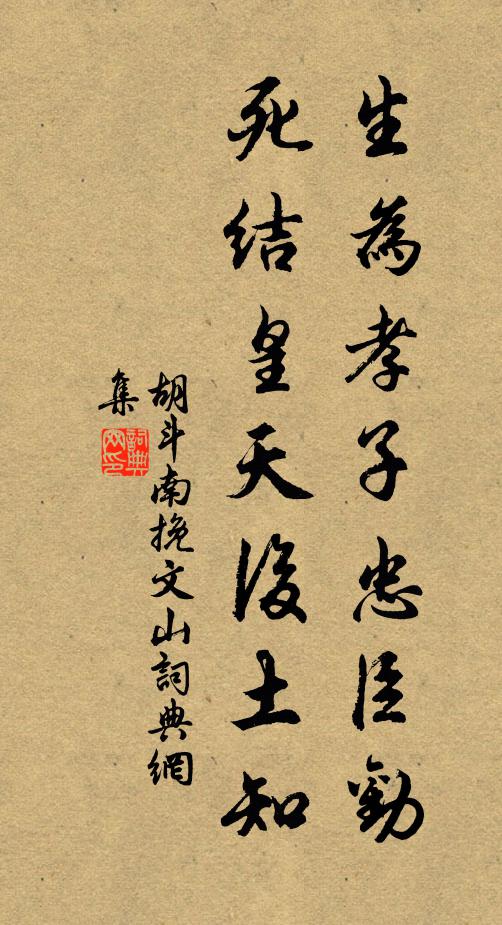 生為孝子忠臣勸
死結皇天後土知
胡斗南挽文山詞典網
集
詞典
网印